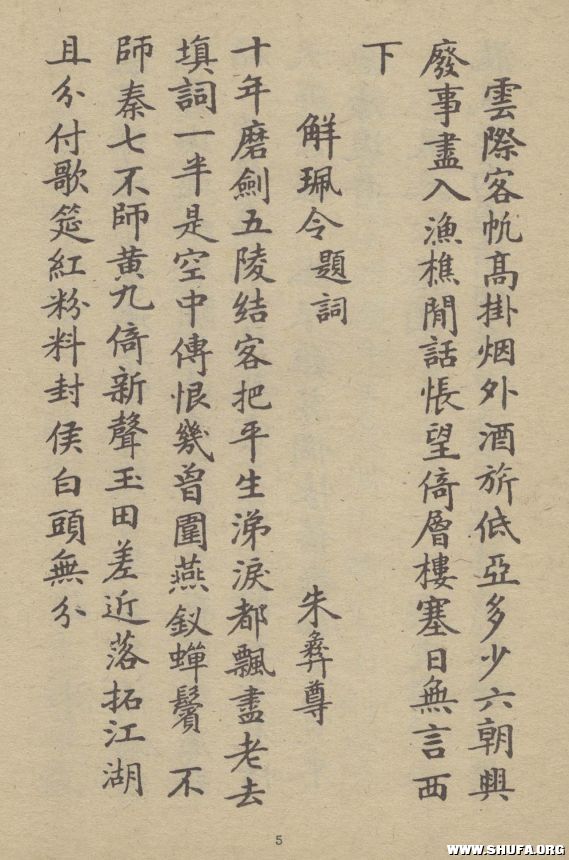 雲際客帆高掛烟外酒旂低亞多少六朝興
廢事盡入漁樵閒話悵望倚層樓寒日無言西
下
解珮令 題詞
朱彝尊
十年磨劍五陵結客把平生涕淚都飄盡老去
填詞一半是空中傳恨幾曾圍燕釵蟬鬢 不
師秦七不師黃九倚新聲玉田差近落拓江湖
且分付歌筵紅粉料封侯白頭無分
5
WWW.SHUFA.ORG